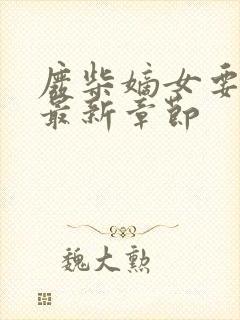 废柴嫡女要
最新章节
魏大勲